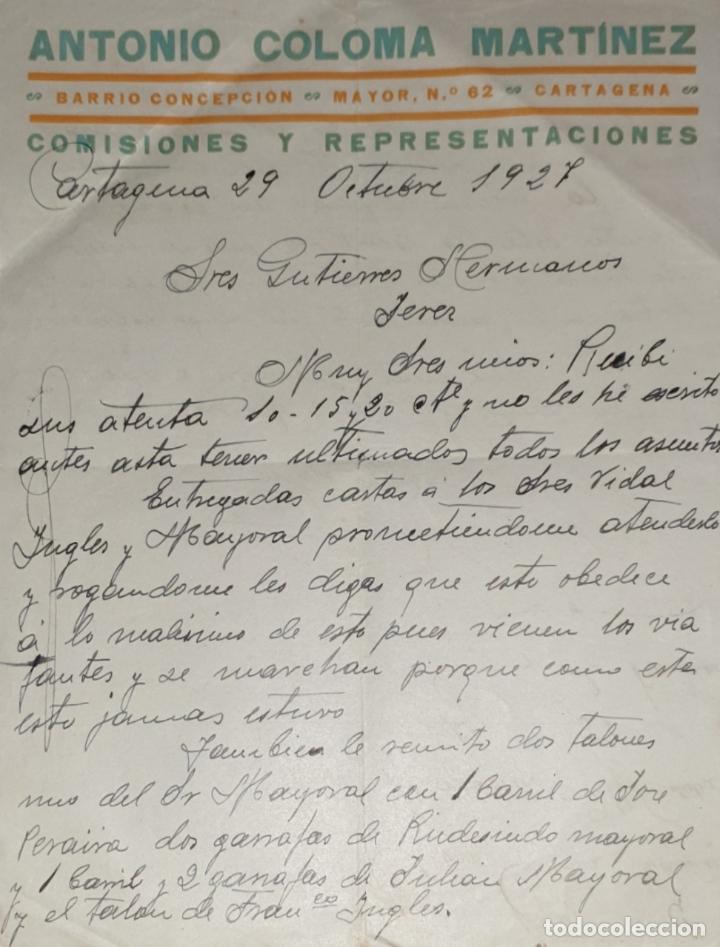 ANTONIO COLOMA MARTÍNEZ
BARRIO CONCEPCIÓN MAYOR, N.º 62 CARTAGENA
COMISIONES Y REPRESENTACIONES
Cartagena 29 Octubre 1927
Sres Gutierres Hermanos
Jerez
Muy Sres mios: Recibi
sus atenta 10-15 y 20 y no les he escrito
antes asta tener ultimados todos los asuntos
Entregadas cartas á los Sres Vidal
Ingles y Mayoral prometiendome atenderlo
y rogandome les digas que esto obedece
á lo malisimo de esto pues vienen los via
jantes y se marchan porque como esta
esto jamas estuvo
Tambien le remito dos talones
uno del Sr Mayoral con 1 barril de Jose
Peraira dos garrafas de Rudesindo mayoral
y 1 barril y 2 garrafas de Julian Mayoral
y el talon de Franco Ingles.
todocoleccion